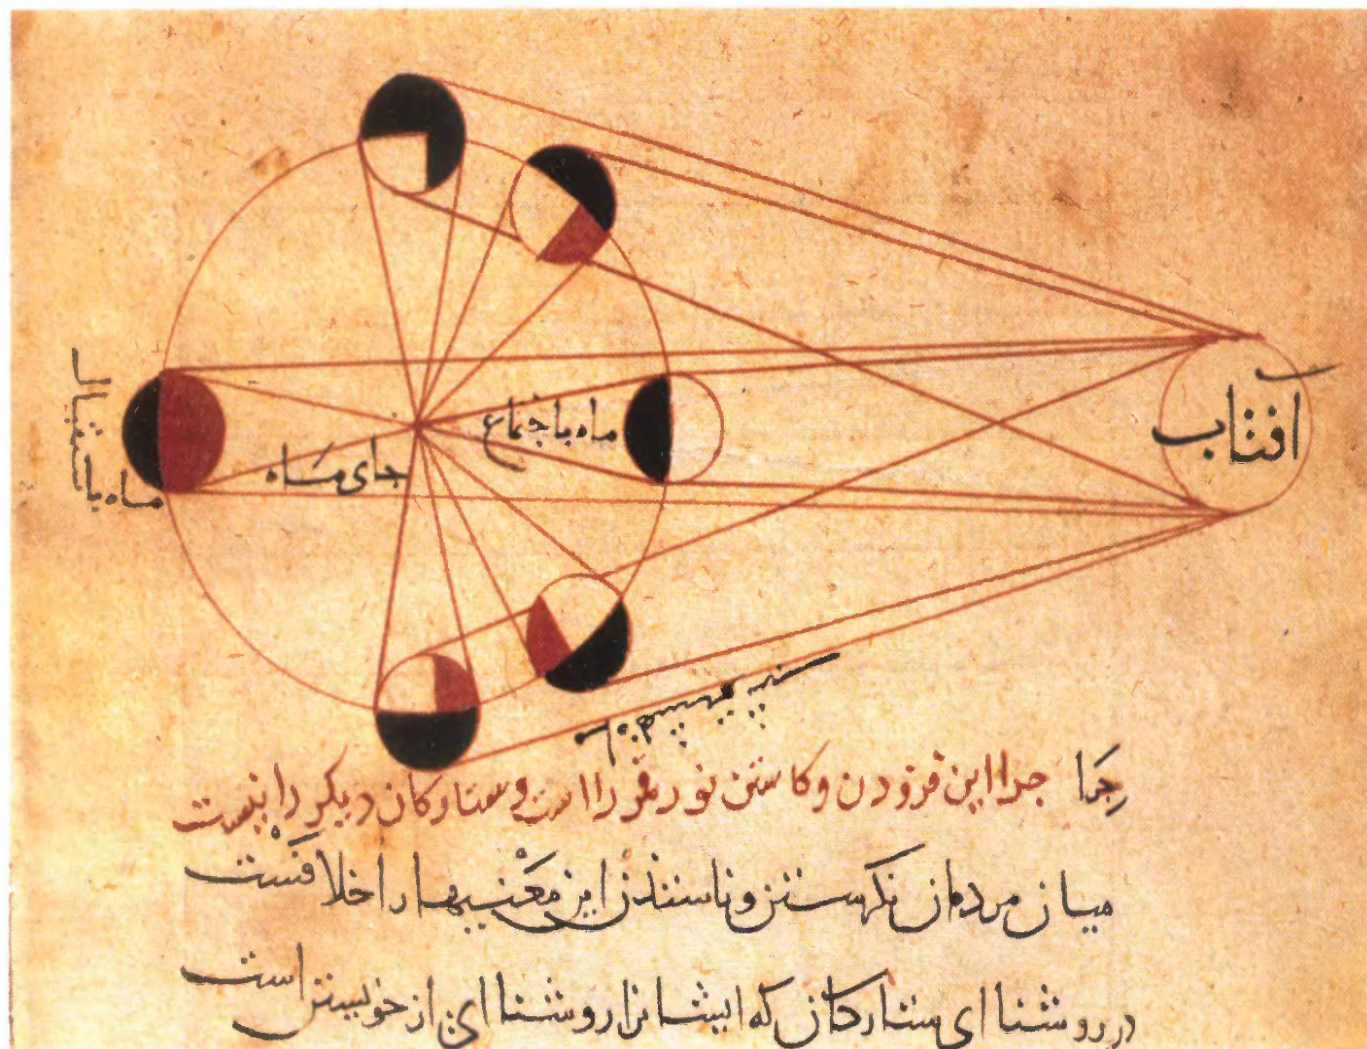 آفتاب
ماه باجتماع
جای ماه
ماه باستقبال
چرا چرا این فزودن و کاستن نور قمر را است و ستارکان دیکر را نیست
میان مردمان نکرستن و ناسندن این معنیها را خلافست
در روشنا ای ستارکان که ایشانرا روشنا ای از خویستن است